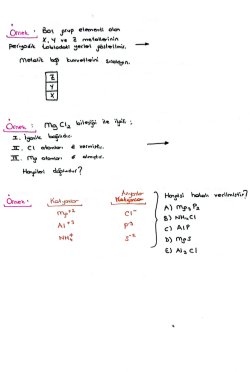 Örnek: Baş grup elementi olan
X, Y ve Z metallerinin
periyodik tablodaki yerleri gösterilmiş.
Metalik bağ kuvvetlerini sıralayın.
Z
Y
X
Örnek: MgCl₂ bileşiği ile ilgili;
I. İyonik bağlıdır.
II. Cl atomları e⁻ vermiştir.
III. Mg atomları e⁻ almıştır.
Hangileri doğrudur?
Örnek: Katyonlar Anyonlar Hangisi hatalı verilmiştir?
Mg⁺² Cl⁻ A) Mg₃P₂
Al⁺³ P⁻³ B) NH₄Cl
NH₄⁺ S⁻² C) AlP
D) MgS
E) Al₃Cl